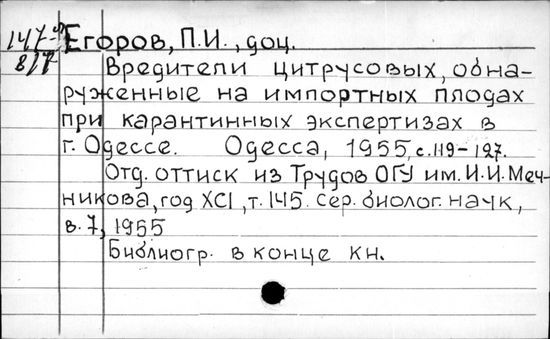 147-9 Егоров, П.И., доц.
817
Вредители цитрусовых, обна-
руженные на импортных плодах
при карантинных экспертизах в
г. Одессе. Одесса, 1955, с.119-127.
Отд. оттиск из Трудов ОГУ им. И.И. Меч-
никова, год XCI, т. 145. Сер. биолог. наук,
в. 7, 1955
Библиогр. в конце кн.